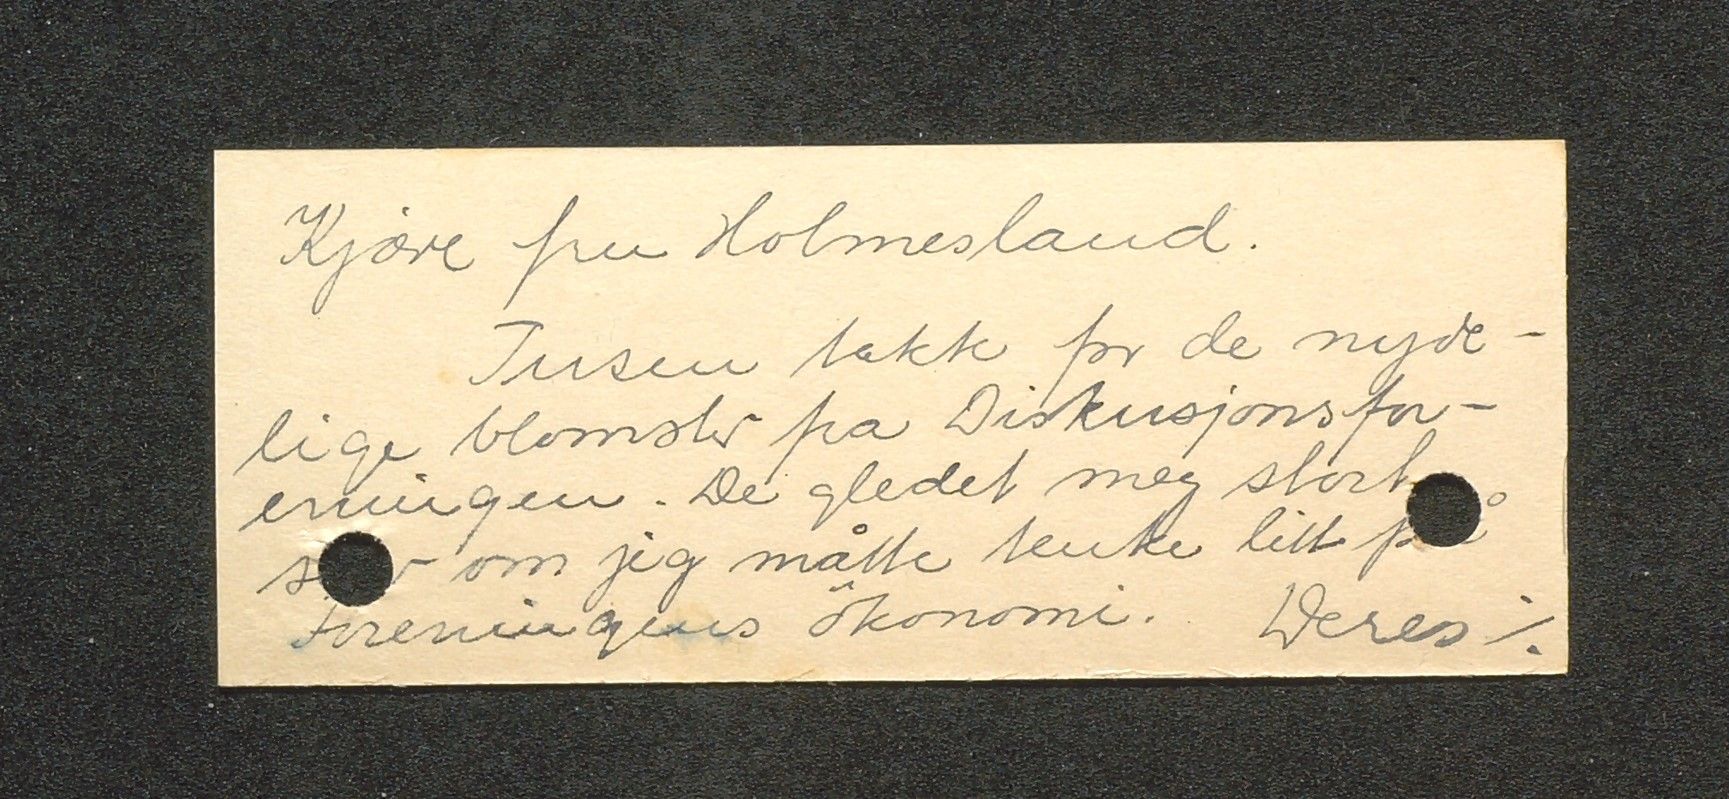 Kjære fru Holmesland.
Tusen takk for de nyde-
lige blomster fra Diskusjonsfor-
eningen. De gledet meg stort
om jeg måtte tenke litt på
Foreningens ökonomi. Deres ·/.